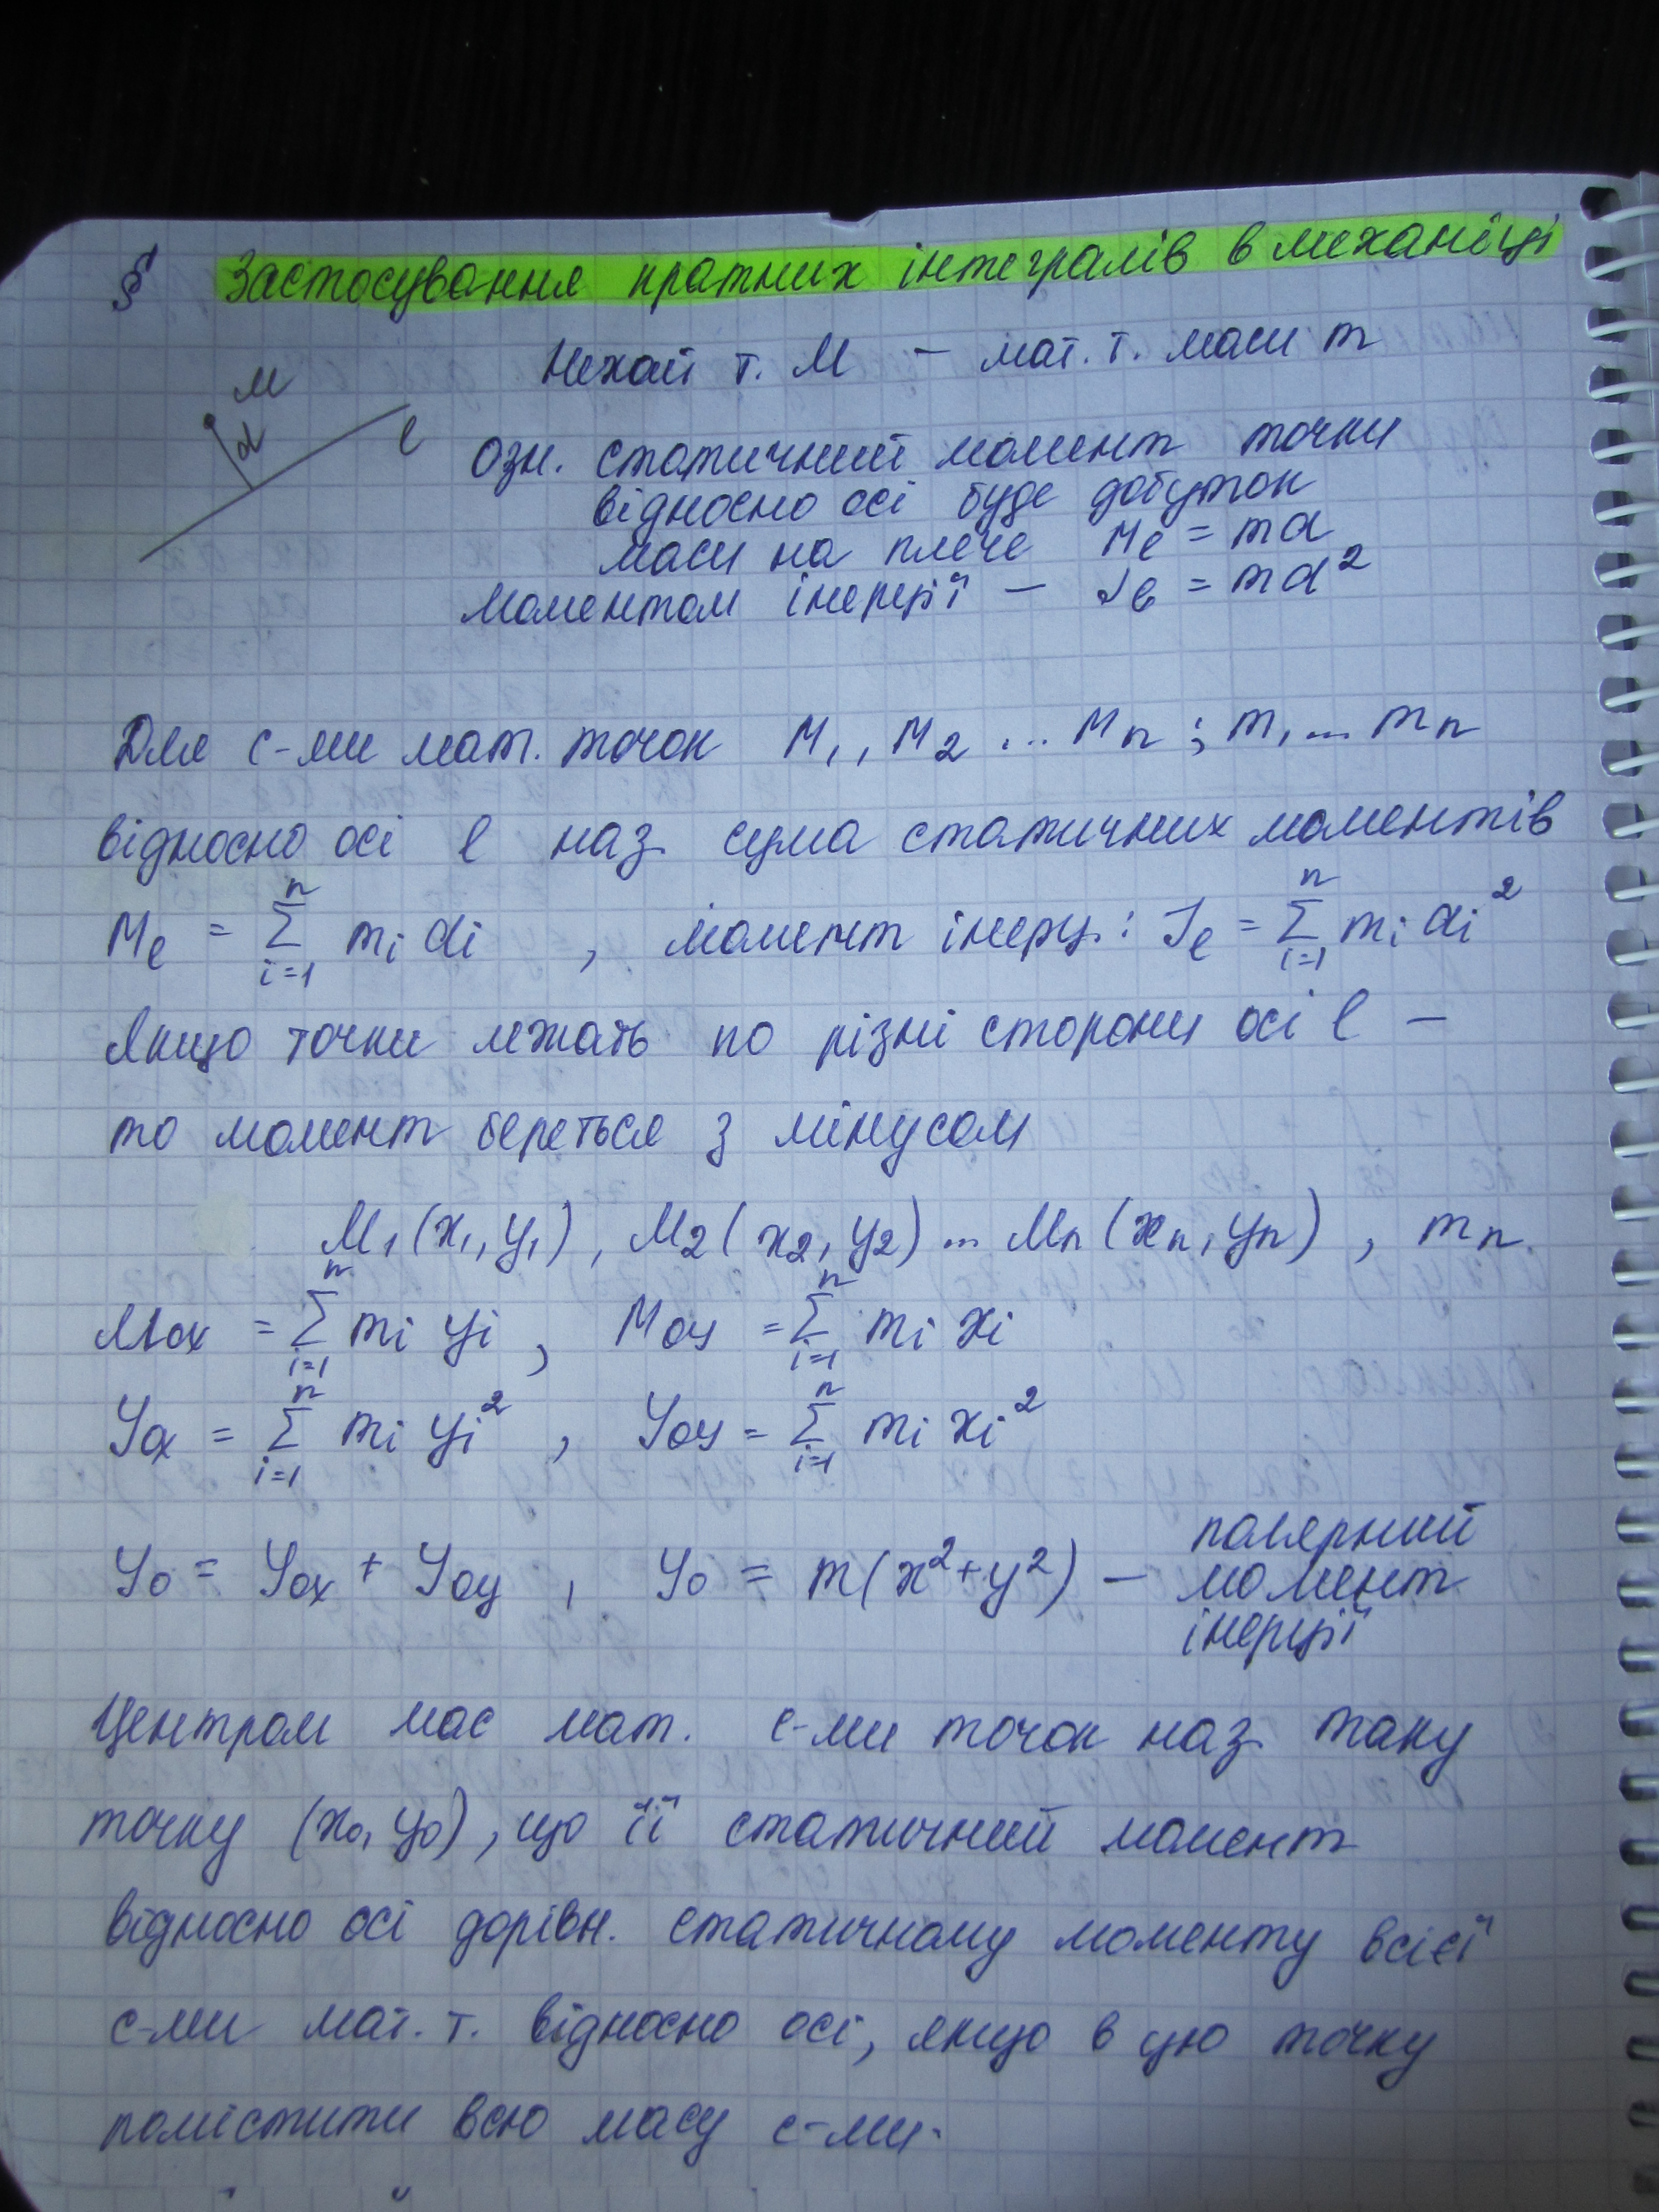 § Застосування кратних інтегралів в механіці
Нехай т. M – мат. т. маси m
M
d
l
Озн. статичний момент точки
відносно осі буде добуток
маси на плече M_l = md
Моментом інерції – J_l = md²
Для с-ми мат. точок M₁, M₂ ... Mₙ ; m₁ ... mₙ
відносно осі l наз. сума статичних моментів
M_l = Σ_{i=1}^{n} mᵢ dᵢ , момент інерц.: J_l = Σ_{i=1}^{n} mᵢ dᵢ²
Якщо точки лежать по різні сторони осі l –
то момент береться з мінусом
M₁(x₁, y₁), M₂(x₂, y₂) ... Mₙ(xₙ, yₙ) , mₙ.
M_{ox} = Σ_{i=1}^{n} mᵢ yᵢ , M_{oy} = Σ_{i=1}^{n} mᵢ xᵢ
Y_{ox} = Σ_{i=1}^{n} mᵢ yᵢ² , Y_{oy} = Σ_{i=1}^{n} mᵢ xᵢ²
Y₀ = Y_{ox} + Y_{oy} , Y₀ = m(x²+y²) – полярний
момент
інерції
Центром мас мат. с-ми точок наз. таку
точку (x₀, y₀), що її статичний момент
відносно осі дорівн. статичному моменту всієї
с-ми мат. т. відносно осі, якщо в цю точку
помістити всю масу с-ми.